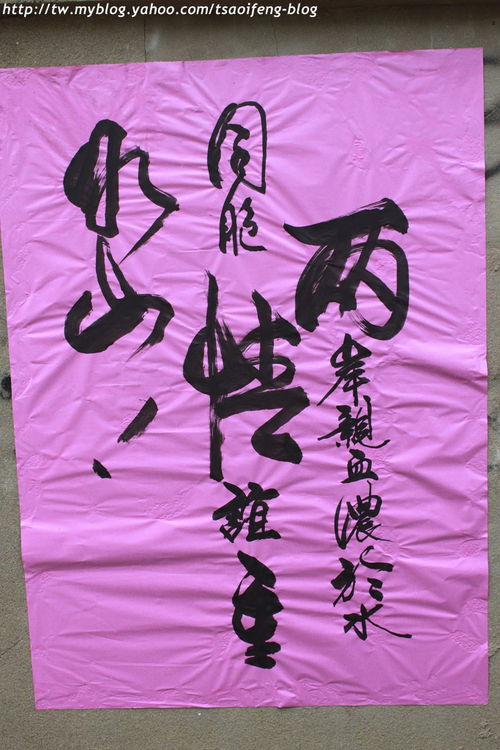 http://tw.myblog.yahoo.com/tsaoifeng-blog
两岸親血濃於水
同胞情誼重
如山！